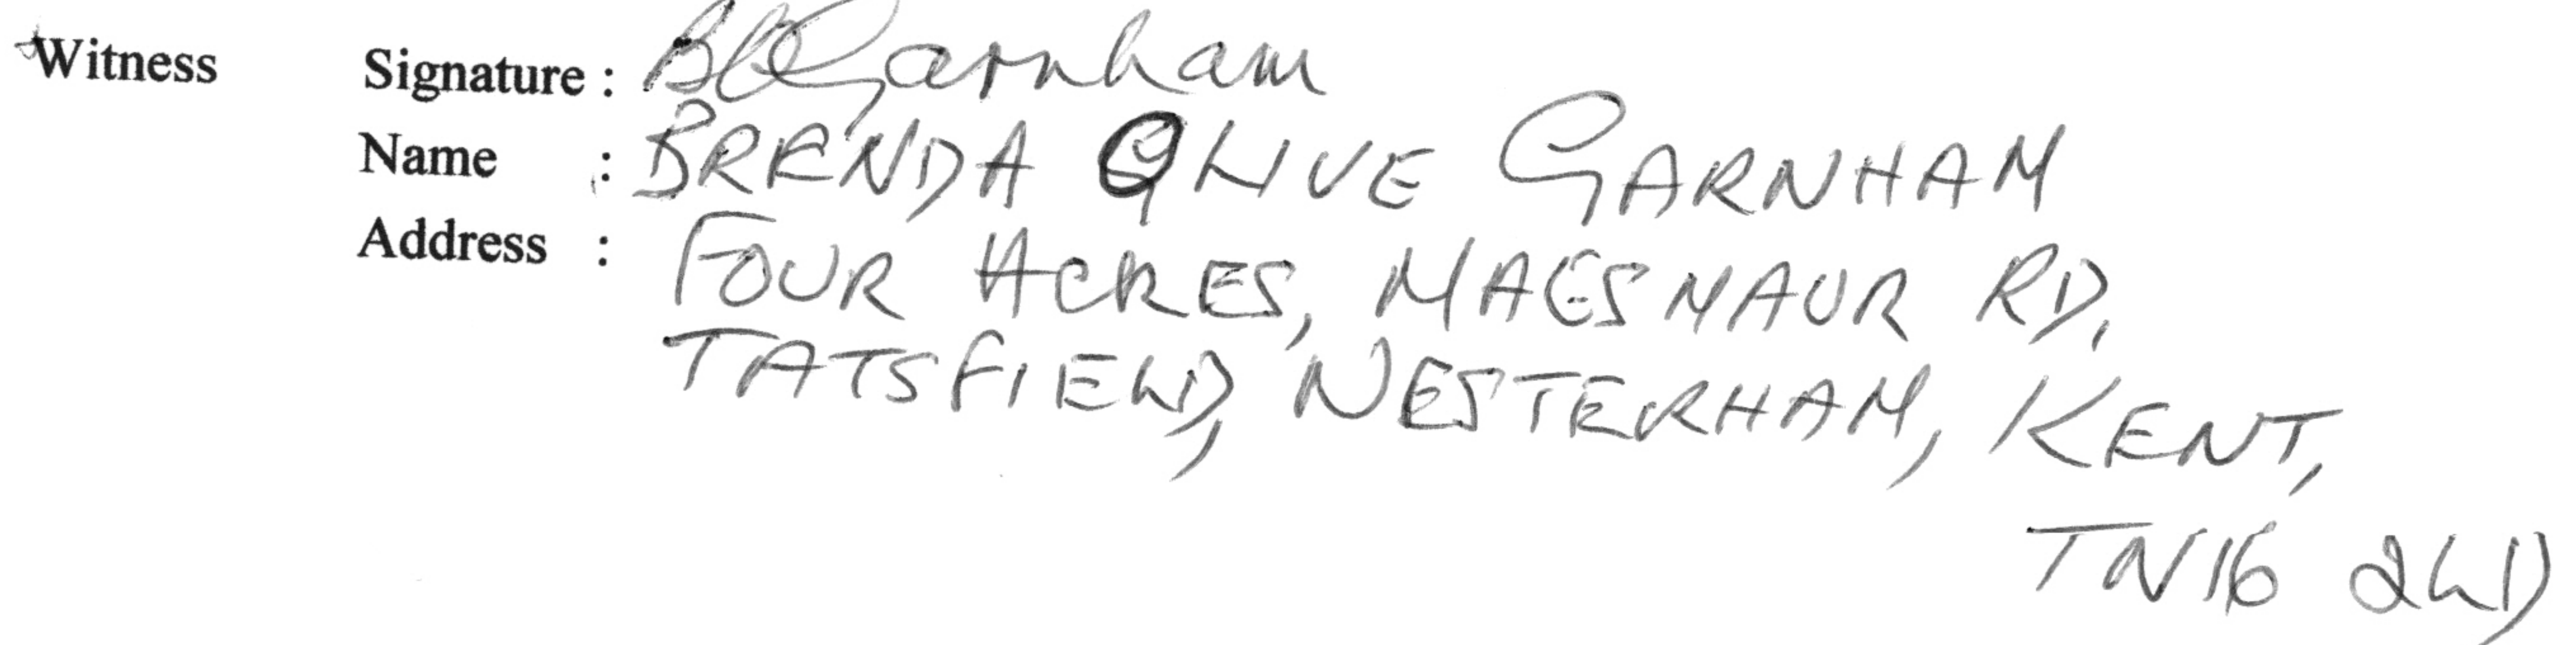 Witness Signature : BOGarnham
Name : BRENDA OLIVE GARNHAM
Address : FOUR ACRES, MAESMAUR RD,
TATSFIELD, WESTERHAM, KENT,
TN16 2LD